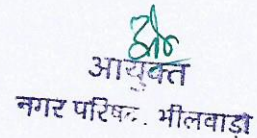 आयुक्त
नगर परिषद. भीलवाड़ा